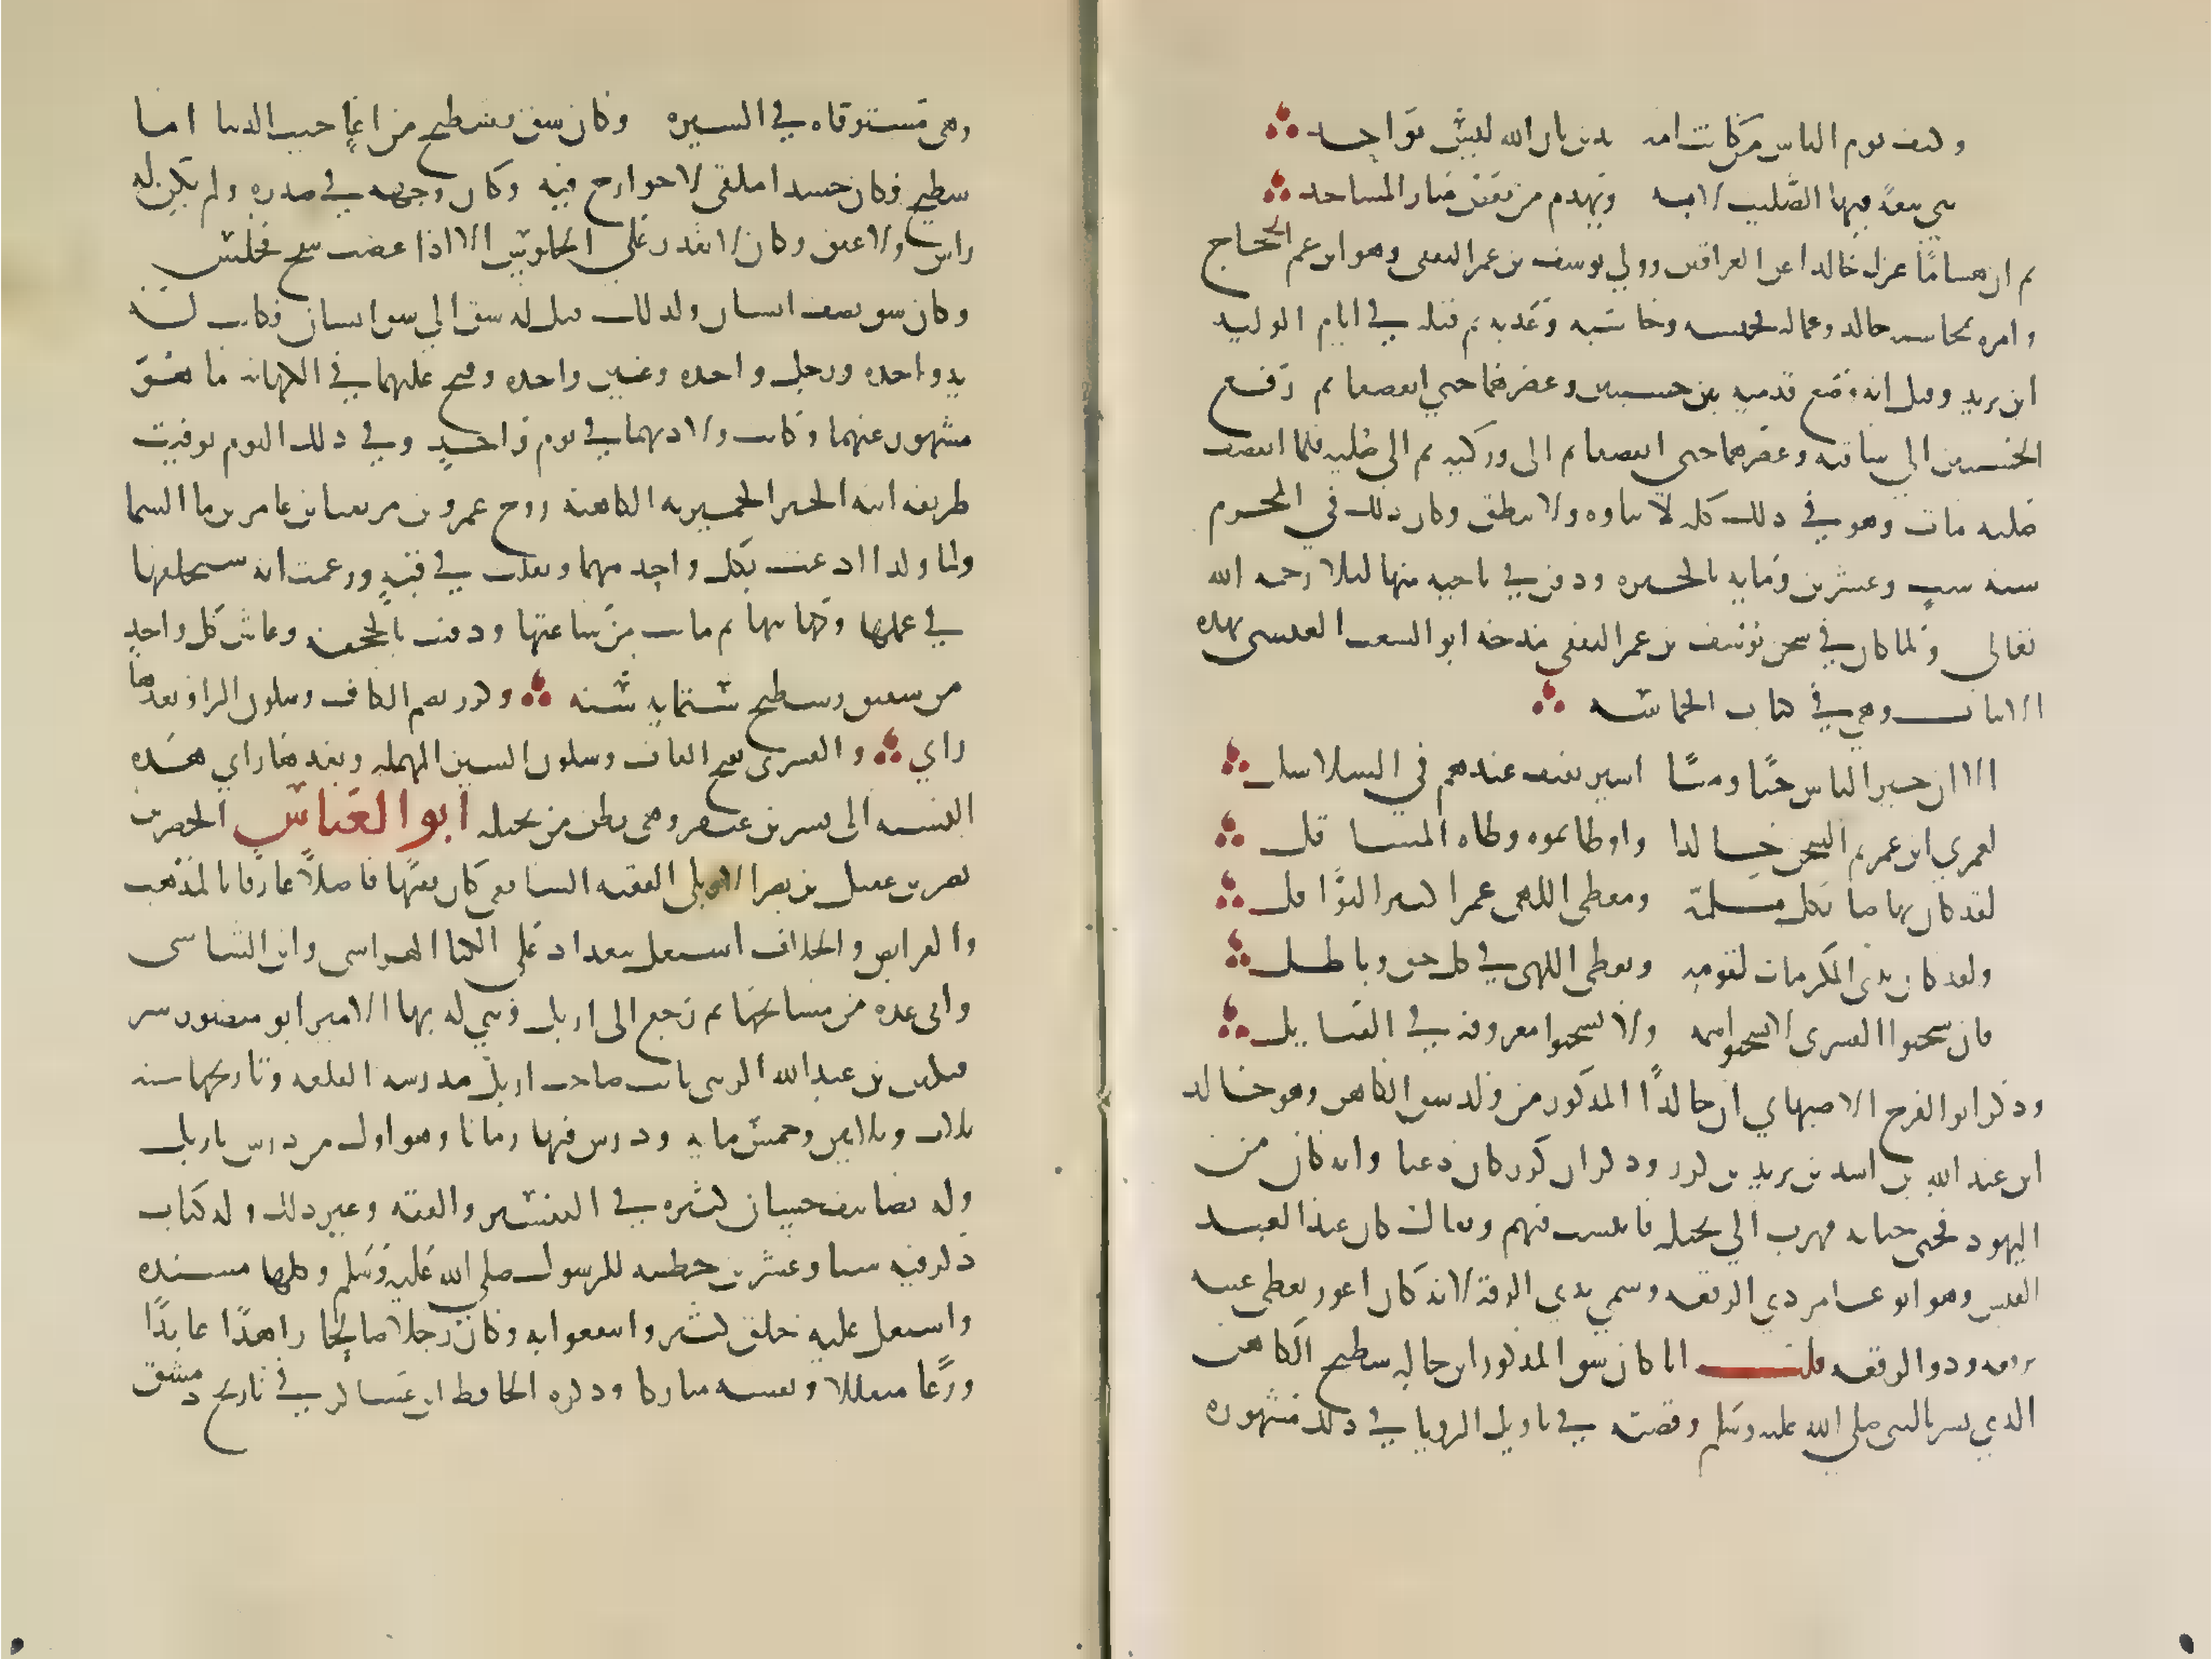 وكيف يوم الناس من كانت امه يدين بان الله ليس بواحد
بنى بيعة فيها الصليب لامه ويهدم من بغض منار المساجد
ثم ان هشاما عزل خالدا عن العراقين وولي يوسف بن عمر الثقفي وهو ابن عم الحجاج
وامره بمحاسبه خالد وعماله فحبسه وحاسبه وعذبه ثم قتله في ايام الوليد
ابن يزيد وقيل انه وضع قدميه بين خشبتين وعصرهما حتى انقصفا ثم رفع
الخشبتين الى ساقيه وعصرهما حتى انقصفا ثم الى وركيه ثم الى صلبه فلما انقصف
صلبه مات وهو في ذلك كله لا يتاوه ولا ينطق وكان ذلك في المحرم
سنه ست وعشرين ومايه بالحيره ودفن في ناحيه منها ليلا رحمه الله
تعالى ولما كان في سجن يوسف بن عمر الثقفي مدحه ابو الشغب العبسي بهذه
الابيات وهي في كتاب الحماسه
الا ان خير الناس حيًا وميتًا اسير ثقيف عندهم في السلاسل
لعمري لين عمرتم السجن خالدا واوطاتموه وطاه المتثاقل
لقد كان نهاضا بكل ملمة ومعطي اللهى غمرا كثير النوافل
ولقد كان يبني المكرمات لقومه ويعطي اللهى في كل حق وباطل
فان سجنوا القسري لا يسجنوا اسمه ولا يسجنوا معروفه في القبايل
وذكر ابو الفرج الاصبهاني ان خالدًا المذكور من ولد شق الكاهن وهو خالد
ابن عبد الله بن اسد بن يزيد بن كرز وذكر ان كرز كان دعيا وانه كان من
اليهود فجنى جنايه فهرب الي بجيله فانتسب فيهم ويقال كان عبدا لعبد
القيس وهو ابو عامر ذي الرقعه وسمي بذي الرقعة لانه كان اعور يغطي عينه
برقعه وذو الرقعه قلت انا كان شق المذكور ابن خاله سطيح الكاهن
الذي بشر بالنبي صلى الله عليه وسلم وقصته في تاويل الرويا في ذلك مشهوره
وهي مستوفاه في السيره وكان شق وسطيح من اعاجيب الدنيا اما
سطيح فكان جسدا ملقى لا جوارح فيه وكان وجهه في صدره ولم يكن له
راس ولا عنق وكان لا يقدر على الجلوس الا اذا غضب انتفخ فجلس
وكان شق نصف انسان ولذلك قيل له شق اي شق انسان فكانت له
يد واحده ورجل واحده وعين واحده وفتح عليهما في الكهانه ما هو
مشهور عنهما وكانت ولادتهما في يوم واحدٍ وفي ذلك اليوم توفيت
طريفه ابنه الخير الحميريه الكاهنة زوج عمرو بن مزيقيا بن عامر بن ما السما
ولما ولدا دعت بكل واحد منهما وتفلت في فيه وزعمت انه سيخلفها
في علمها وكهانتها ثم ماتت من ساعتها ودفنت بالجحفه وعاش كل واحد
من شق وسطيح ستمايه سنه وكرز بضم الكاف وسكون الرا وبعدها
زاي والقسري بفتح القاف وسكون السين المهمله وبعدها راي هذه
النسبه الى قسر بن عبقر وهي بطن من بجيله ابو العباس الخضر بن
نصر بن عقيل بن نصر الاربلي الفقيه الشافعي كان فقيهًا فاضلًا عارفا بالمذهب
والفرايض والخلاف اشتغل ببغداد على الكيا الهراسي وابن الشاشي
ولقي عده من مشايخها ثم رجع الى اربل وبني له بها الامير ابو منصور سر
فتكين بن عبد الله الزيني نايب صاحب اربل مدرسه القلعه وتاريخها سنه
ثلاث وثلاثين وخمس مايه ودرس فيها زمانا وهو اول من درس باربل
وله تصانيف حسان كثيره في التفسير والفقه وغير ذلك وله كتاب
ذكر فيه ستا وعشرين خطبه للرسول صلى الله عليه وسلم وكلها مسنده
واشتغل عليه خلق كثير وانتفعوا به وكان رجلا صالحا زاهدًا عابدًا
ورعًا متقللا ونفسه مباركا وذكره الحافظ ابن عساكر في تاريخ دمشق